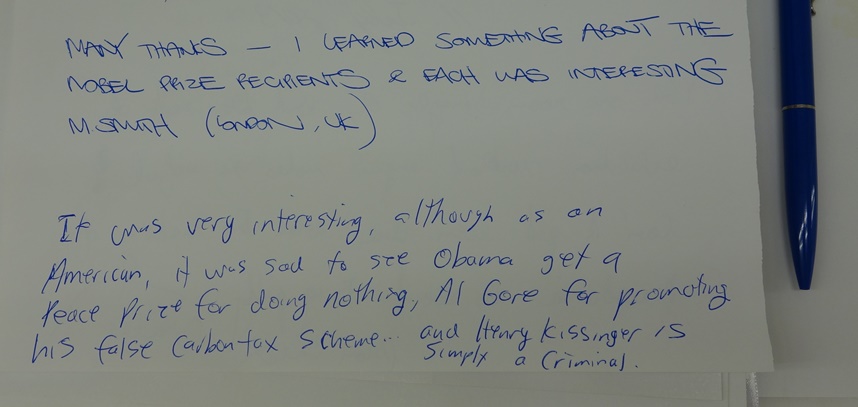 MANY THANKS — I LEARNED SOMETHING ABOUT THE
NOBEL PRIZE RECIPIENTS & EACH WAS INTERESTING
M.SMITH (LONDON, UK)
It was very interesting, although as an
American, it was sad to see Obama get a
Peace Prize for doing nothing, Al Gore for promoting
his false Carbon tax scheme... and Henry Kissinger is
Simply a Criminal.